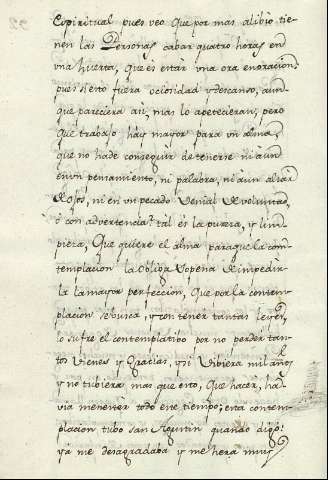 Espiritual pues veo Que por mas alibio tie-
nen las Personas cabar quatro horas en
vna huerta, Que es estar vna ora en oracion.
pues si esto fuera ociosidad y descanso, aun-
que pareciera asi, mas lo apetecieran; pero
que trabajo hay mayor para vn alma,
que no ha de conseguir detenerse ni aun
en vn pensamiento, ni palabra, ni aun alsar
los ojos, ni en vn pecado Venial de voluntad,
o con advertencia: tal es la pureza, y lim-
pieza, Que quiere el alma para que la con-
templacion la obliga Sopena de impedir-
la la mayor perfeccion, Que por la contem-
placion se busca, y con tener tantas leyes,
lo sufre el contemplatibo por no perder tan-
tos Vienes y Gracias, y si Vibiera mil años
y no tubiera mas que esto, Que hacer, ha-
via menester todo ese tiempo; esta contem-
placion tubo san Agustin quando digo:
ya me desagradaba y me hera muy